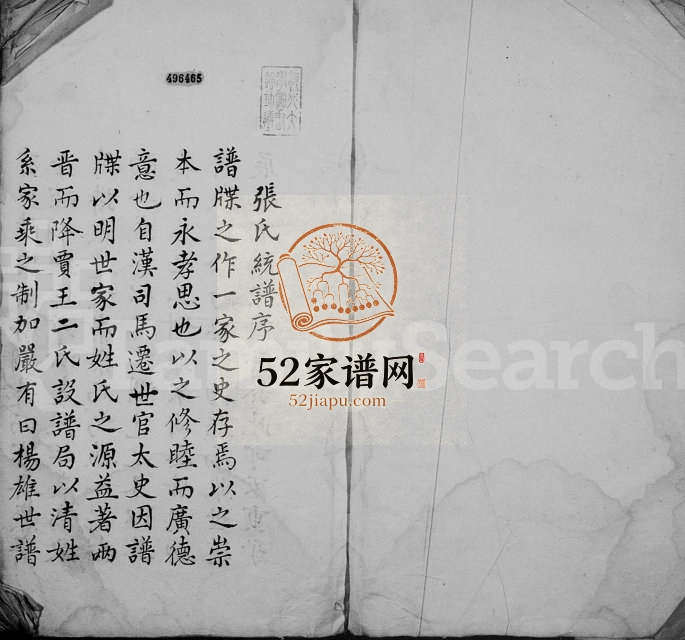 496465
張氏統譜序
譜牒之作一家之史存焉以之崇
本而永孝思也以之修睦而廣德
意也自漢司馬遷世官太史因譜
牒以明世家而姓氏之源益著兩
晋而降賈王二氏設譜局以清姓
系家乘之制加嚴有曰楊雄世譜
52家谱网
52jiapu.com
Search